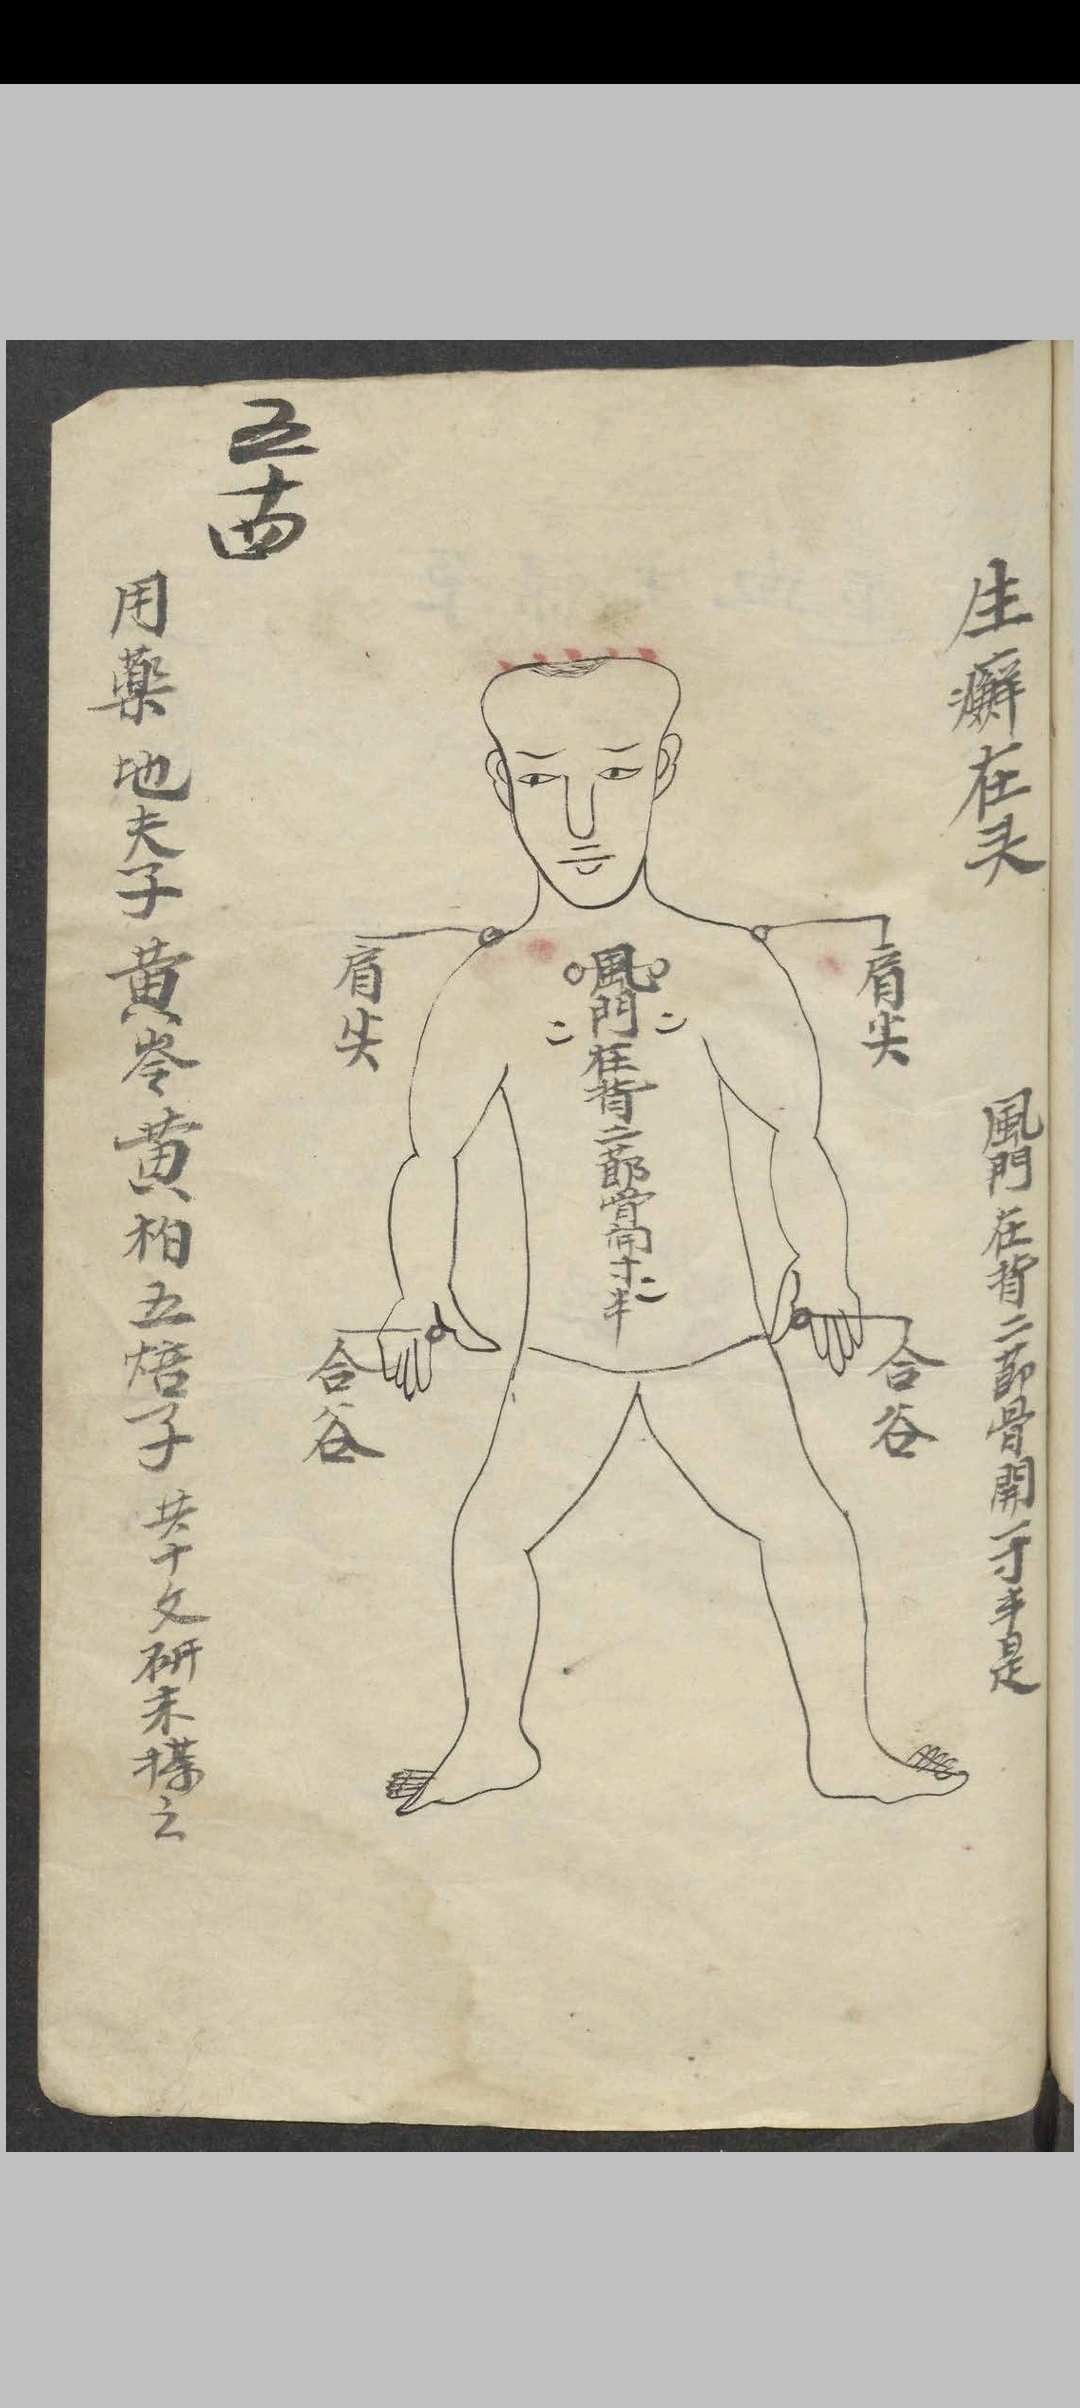 生癬在头
風門在背二節骨開一寸半是
肩尖
合谷
風門在背二節骨開寸半
二
二
二
肩尖
合谷
五十四
用藥地夫子黃岑黃柏五焙子共十文研末搽之